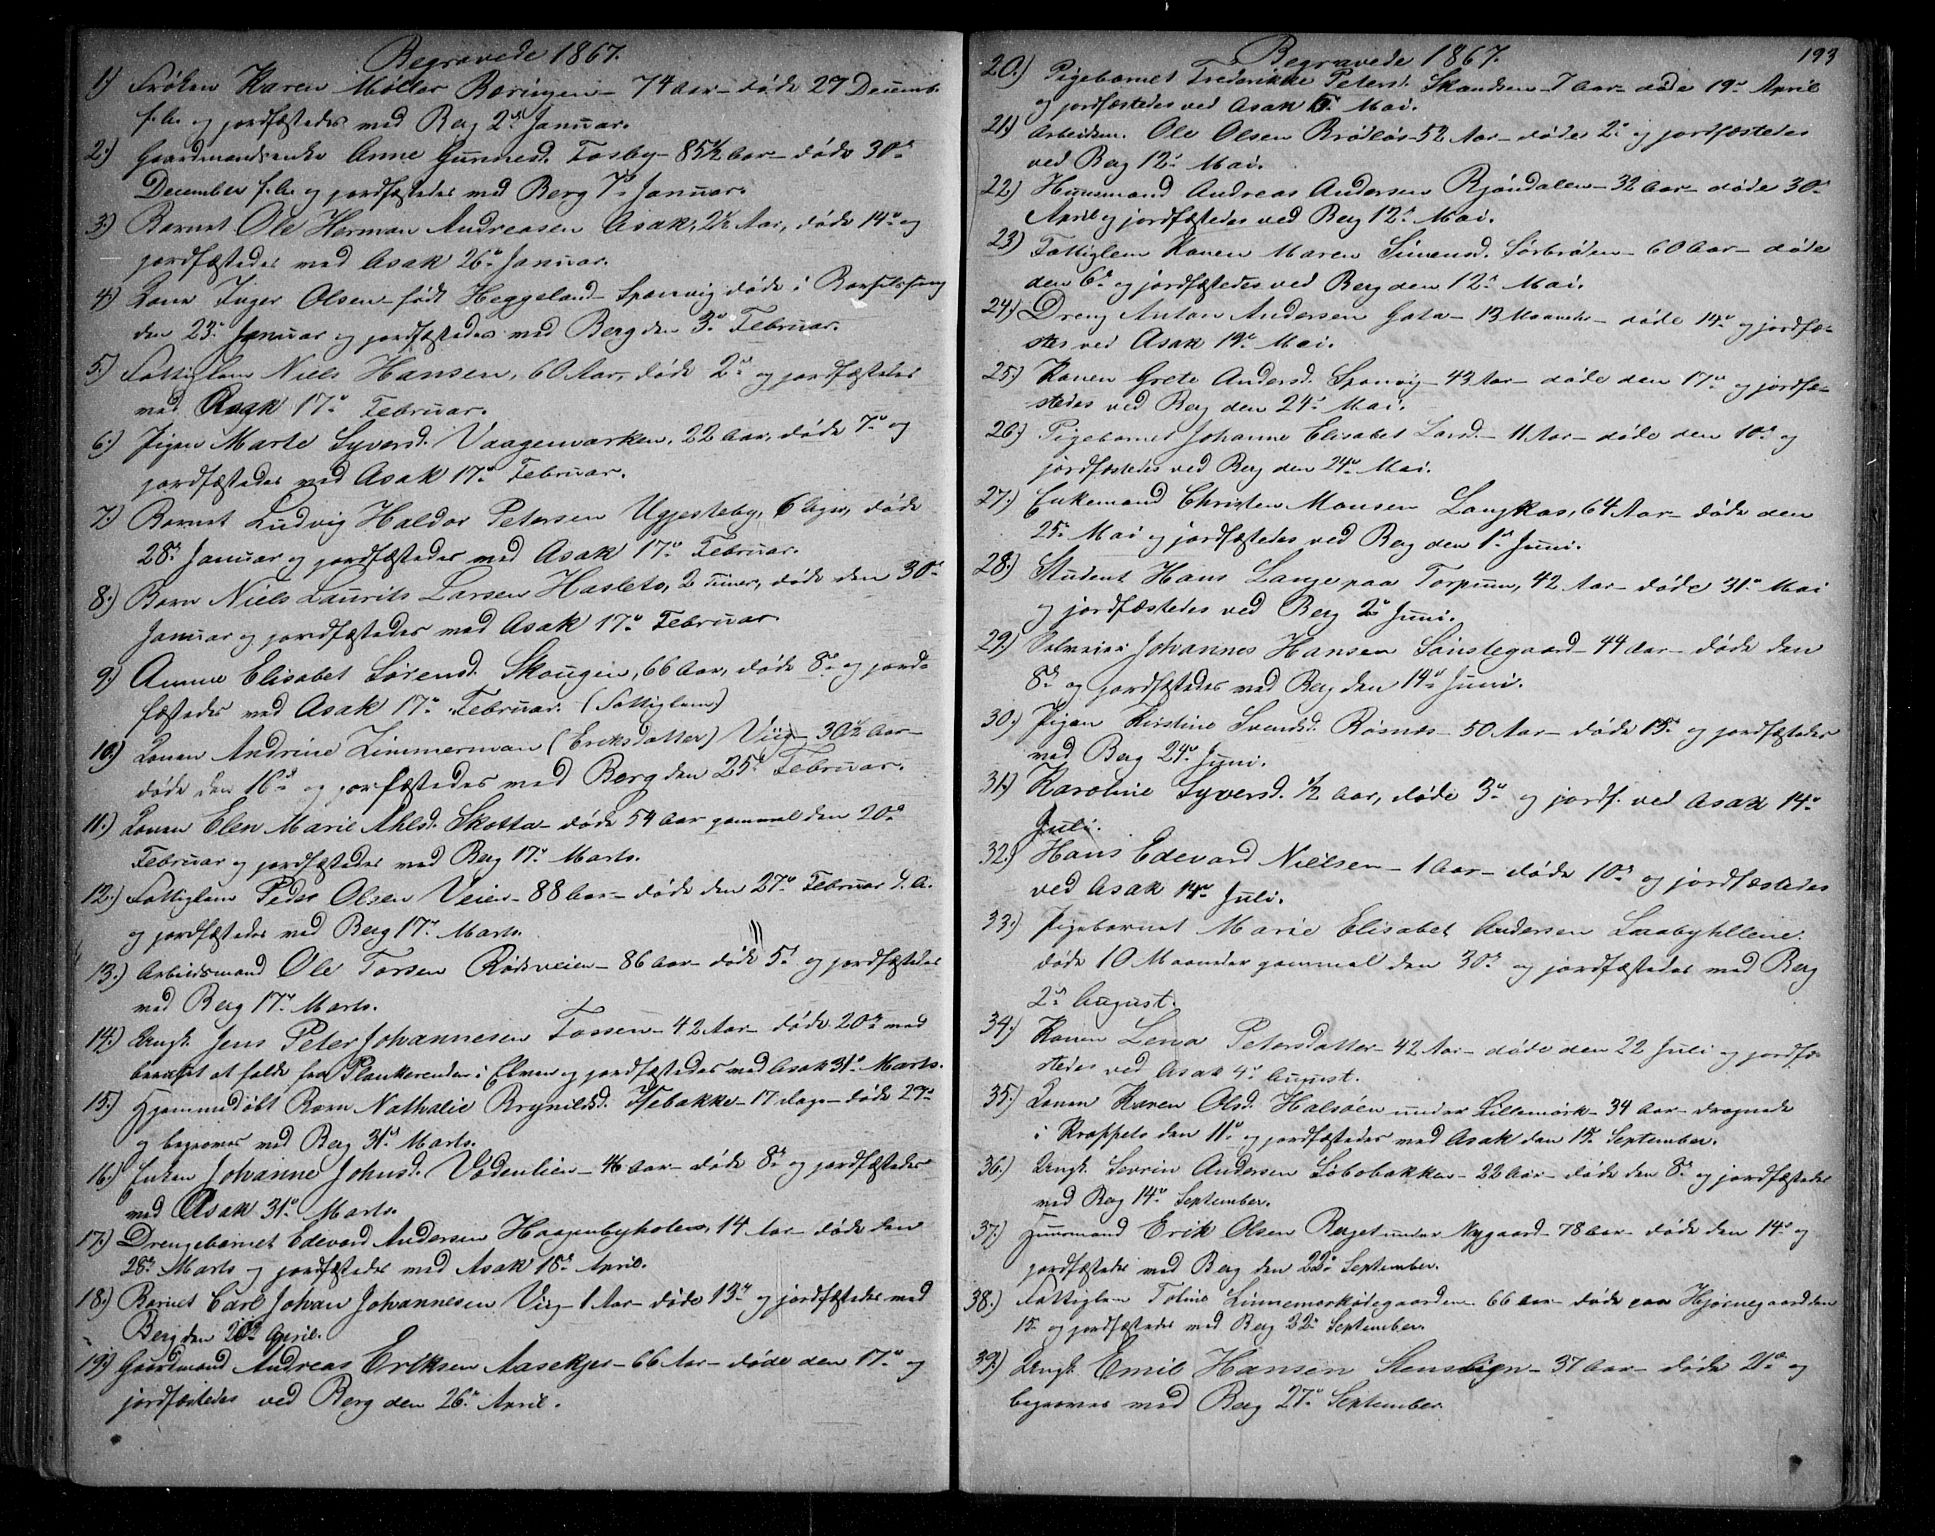 Begravede 1867.
1.) Frøken Karen Møller 74 Aar – døde 27 Decemb.
f. A. og jordfæstedes ved Berg 2den Januar.
2.) Gaardmandsenke Anne Gunnesd. Tosby – 85½ Aar – døde 30te
December f. A. og jordfæstedes ved Berg 7de Januar.
3.) Barnet Ole Herman Andreasen Asak, 2½ Aar, døde 14de og
jordfæstedes ved Asak 26de Januar.
4.) Konen Inger Olsen – født Heggeland – Sponvig døde i Barselseng
den 23de Januar og jordfæstedes ved Berg den 3de Februar.
5.) Fattiglem Niels Hansen, 60 Aar, døde 2den og jordfæstedes
ved Asak 17de Februar.
6.) Pigen Marte Syversd. Vaagemarken, 22 Aar, døde 7de og
jordfæstedes ved Asak 17de Februar.
7.) Barnet Ludvig Haldor Petersen Ugjesteby, 6 Uger, døde
28de Januar og jordfæstedes ved Asak 17de Februar.
8.) Barn Niels Laurits Larsen Hasleto, 2 Timer, døde den 30te
Januar og jordfæstedes ved Asak 17de Februar.
9.) Anne Elisabet Sørensd. Skougen, 66 Aar, døde 8de og jord-
fæstedes ved Asak 17de Februar. (Fattiglem)
10.) Konen Andrine Zimmerman (Eriksdatter) Viig – 30½ Aar –
døde den 16de og jorfæstedes ved Berg den 25de Februar.
11.) Konen Elen Marie Ahlsd. Skotta – døde 54 Aar gammel den 20de
Februar og jordfæstedes ved Berg 17de Marts.
12.) Fattiglem Peder Olsen Veien – 88 Aar – døde den 27de Februar d. A.
og jordfæstedes ved Berg 17de Marts.
13.) Arbeidsmand Ole Torsen Rødsveien – 86 Aar – døde 5te og jordfæstedes
ved Berg 17de Marts.
14.) Ungk. Jens Peter Johannesen Tossen – 42 Aar – døde 20de ved
at falde fra Plankerenden i Elven og jordfæstedes ved Asak 31te Marts.
15.) Hjemmedøbt Barn Nathalie Brynilsd. Isebakke – 17 Dage – døde 27de
og begraves ved Berg 31te Marts.
16.) Enken Johanne Johnsd. Vedenlien – 46 Aar – døde 8de og jordfæstedes
ved Asak 31te Marts.
17.) Drengebarnet Edevard Andersen Haagenbyholen, 14 Aar – døde den
28de Marts og jordfæstedes ved Asak 15de April.
18.) Barnet Carl Johan Johannesen Viig – 1 Aar – døde 13de og jordfæstedes ved
Berg den 20de April.
19.) Gaardmand Andreas Eriksen Aasekjær – 66 Aar – døde den 17de og
jordfæstedes ved Berg den 26de April.
193
Begravede 1867.
20.) Pigebarnet Frederikke Petersd. Skandsen – 7 Aar – døde 19de April
og jordfæstedes ved Asak 5 Mai.
21.) Arbeidsm. Ole Olsen Brødløs – 52 Aar – døde 2den og jordfæstedes
ved Berg 12te Mai.
22.) Huusmand Andreas Andersen Bjørndalen – 32 Aar – døde 30te
April og jordfæstedes ved Berg 12te Mai.
23.) Fattiglem Karen Maren Simensd. Sørbrøden – 60 Aar – døde
den 6te og jordfæstedes ved Berg den 12te Mai.
24.) Dreng Anton Andersen Gata – 13 Maaneder – døde 14de og jordfæ-
stes ved Asak 19de Mai.
25.) Konen Grete Andersd. Sponvig – 43 Aar – døde den 17de og jordfæ-
stedes ved Berg den 24de Mai.
26.) Pigebarnet Johanne Elisabet Larsd. – 11 Aar – døde den 10de og
jordfæstedes ved Berg den 24de Mai.
27.) Enkemand Christen Monsen Langkas, 64 Aar – døde den
25de Mai og jordfæstedes ved Berg den 1ste Juni.
28.) Student Hans Lange paa Torpum, 42 Aar – døde 31te Mai
og jordfæstedes ved Berg 2den Juni.
29.) Selveier Johannes Hansen Sønstegaard – 44 Aar – døde den
8de og jordfæstedes ved Berg den 14de Juni.
30.) Pigen Kirstine Svendsd. Røsnæs – 50 Aar – døde 15de og jordfæstedes
ved Berg 24de Juni.
31.) Karoline Syversd. ½ Aar, døde 3de og jordf. ved Asak 14de
Juli.
32.) Hans Edevard Nielsen – 1 Aar – døde 10de og jordfæstedes
ved Asak 14de Juli.
33.) Pigebarnet Marie Elisabet Andersen
døde 10 Maaneder gammel den 30te og jordfæstedes ved Berg
2den August.
34.) Konen Lena Petersdatter – 42 Aar – døde den 22 Juli og jordfæ-
stedes ved Asak 4de August.
35.) Konen Karen Olsd. Halsøen under Lillemørk – 34 Aar – druknede
i Kroppeto den 11te og jordfæstedes ved Asak den 15de September.
36.) Ungk. Sevrin Andersen Løbobakken – 22 Aar – døde den 8de og jordfæstedes
ved Berg 14de September.
37.) Huusmand Erik Olsen Berget under Nygaard – 78 Aar – døde den 14de og
jordfæstedes ved Berg den 22de September.
38.) Fattiglem Toline – 66 Aar – døde paa Hjørnegaard den
15de og jordfæstedes ved Berg 22de September.
39.) Ungk. Emil Hansen – 37 Aar – døde 21de og
begraves ved Berg 27de September.